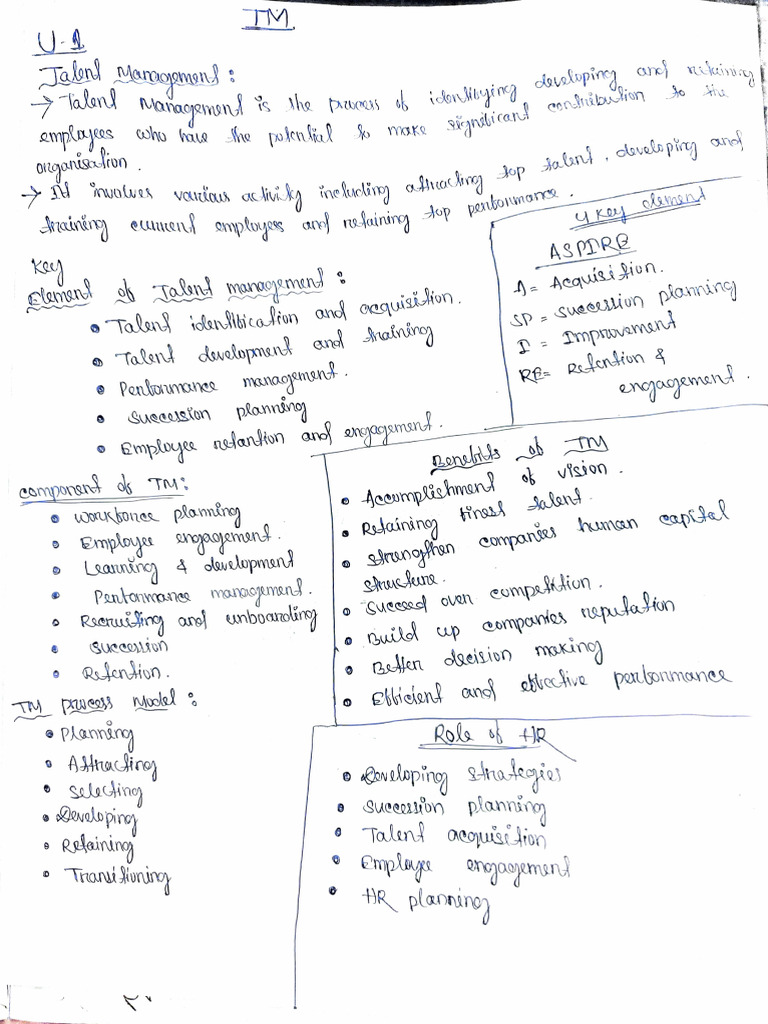 TM
U-1
Talent Management :
→ Talent Management is the process of identifying developing and retaining
employees who have the potential to make significant contribution to the
organisation.
→ It involves various activity including attracting top talent, developing and
training current employees and retaining top performance.
Key
Element of Talent management :
• Talent identification and acquisition.
• Talent development and training
• Performance management.
• Succession planning
• Employee retantion and engagement.
4 Key element
ASPIRE
A = Acquisition.
SP = Succession planning
I = Improvement
RE = Retention &
engagement.
component of TM:
• workforce planning
• Employee engagement.
• Learning & development
• Performance management.
• Recruiting and unboarding
• Succession
• Retention.
Benefits of TM
• Accomplishment of vision.
• Retaining finest talent.
• Strengthen companies human capital
structure.
• Succeed over competition.
• Build up companies reputation
• Better decision making
• Efficient and effective performance
TM process Model :
• Planning
• Attracting
• Selecting
• Developing
• Retaining
• Transitioning
Role of HR
• Developing strategies
• Succession planning
• Talent acquisition
• Employee engagement
• HR planning